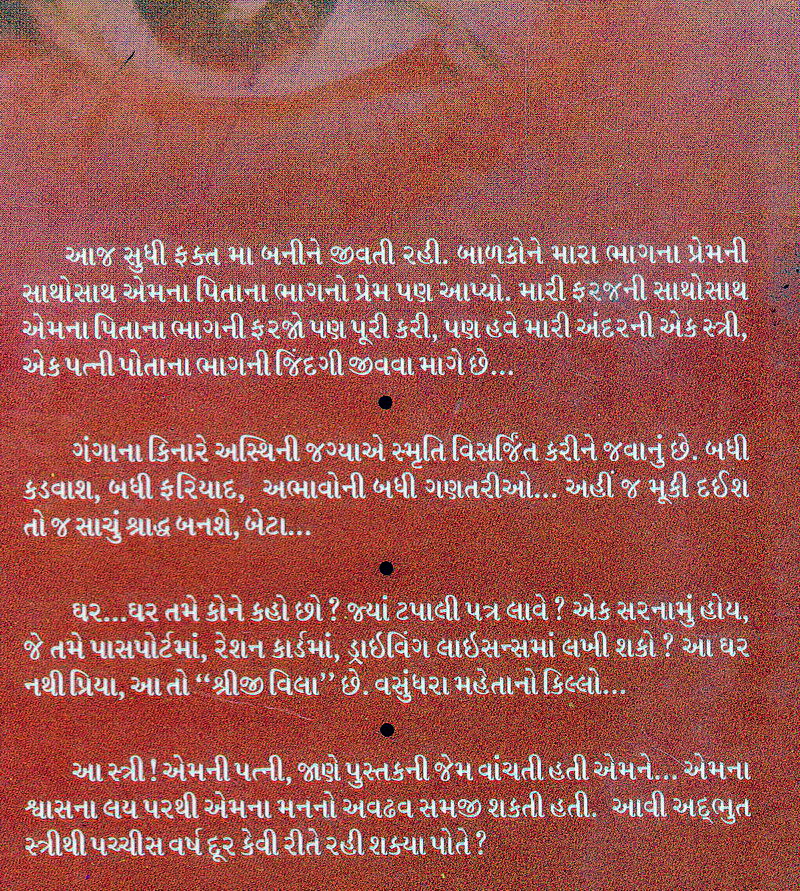 આજ સુધી ફક્ત મા બનીને જીવતી રહી. બાળકોને મારા ભાગના પ્રેમની
સાથોસાથ એમના પિતાના ભાગનો પ્રેમ પણ આપ્યો. મારી ફરજની સાથોસાથ
એમના પિતાના ભાગની ફરજો પણ પૂરી કરી, પણ હવે મારી અંદરની એક સ્ત્રી,
એક પત્ની પોતાના ભાગની જિંદગી જીવવા માગે છે...
●
ગંગાના કિનારે અસ્થિની જગ્યાએ સ્મૃતિ વિસર્જિત કરીને જવાનું છે. બધી
કડવાશ, બધી ફરિયાદ, અભાવોની બધી ગણતરીઓ... અહીં જ મૂકી દઈશ
તો જ સાચું શ્રાદ્ધ બનશે, બેટા...
●
ઘર...ઘર તમે કોને કહો છો ? જ્યાં ટપાલી પત્ર લાવે ? એક સરનામું હોય,
જે તમે પાસપોર્ટમાં, રેશન કાર્ડમાં, ડ્રાઇવિંગ લાઇસન્સમાં લખી શકો ? આ ઘર
નથી પ્રિયા, આ તો “શ્રીજી વિલા” છે. વસુંધરા મહેતાનો કિલ્લો...
●
આ સ્ત્રી ! એમની પત્ની, જાણે પુસ્તકની જેમ વાંચતી હતી એમને... એમના
શ્વાસના લય પરથી એમના મનનો અવઢવ સમજી શકતી હતી. આવી અદ્ભુત
સ્ત્રીથી પચ્ચીસ વર્ષ દૂર કેવી રીતે રહી શક્યા પોતે ?